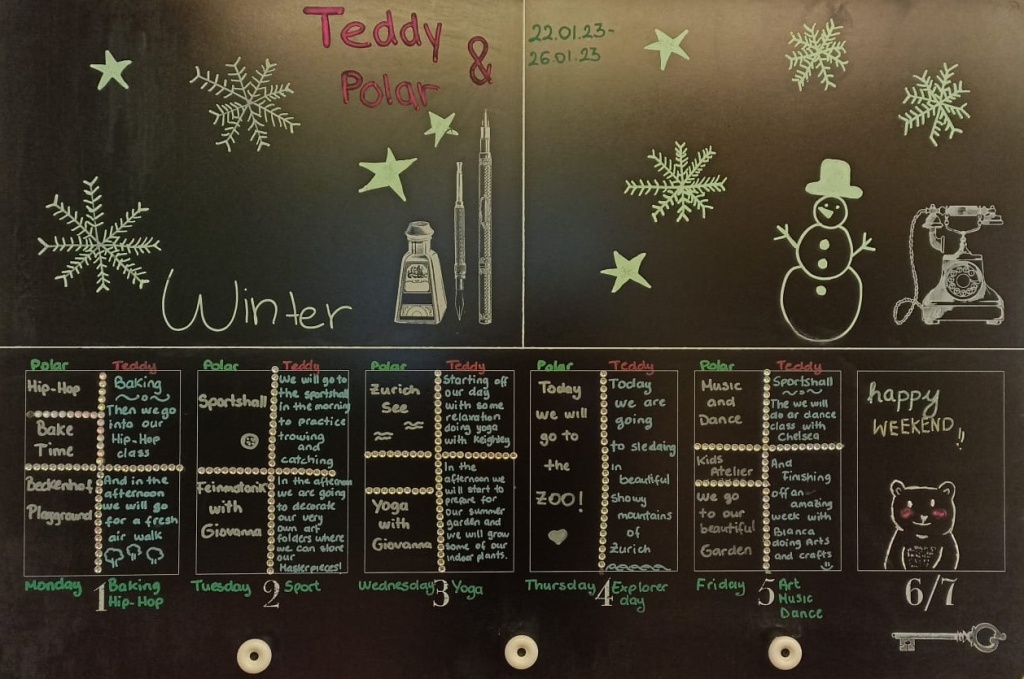 Teddy
&
Polar
22.01.23-
26.01.23
Winter
Polar Teddy
Hip-Hop
Bake
Time
Beckenhof
Playground
Baking
Then we go
into our
Hip-Hop
class
And in the
afternoon
we will go
for a fresh
air walk
Monday 1 Baking
Hip-Hop
Polar Teddy
Sportshall
Feinmotorik
with
Giovanna
We will go to
the sportshall
in the morning
to practice
trowing
and
catching
In the afternoon
we are going
to decorate
our very
own art
folders where
we can store
our
Masterpieces!
Tuesday 2 Sport
Polar Teddy
Zurich
See
Yoga
with
Giovanna
Starting off
our day
with some
relaxation
doing yoga
with Keighley
In the
afternoon we
will start to
prepare for
our summer
garden and
we will grow
some of our
indoor plants.
Wednesday 3 Yoga
Polar Teddy
Today
we will
go to
the
ZOO!
Today
we are
going
to sledging
in
beautiful
snowy
mountains
of
Zurich
Thursday 4 Explorer
day
Polar Teddy
Music
and
Dance
Kids
Atelier
we go
to our
beautiful
Garden
Sportshall
The we will
do ar dance
class with
Chelsea
And
finishing
off an
amazing
week with
Bianca
doing Arts
and crafts
Friday 5 Art
Music
Dance
happy
WEEKEND!!
6/7